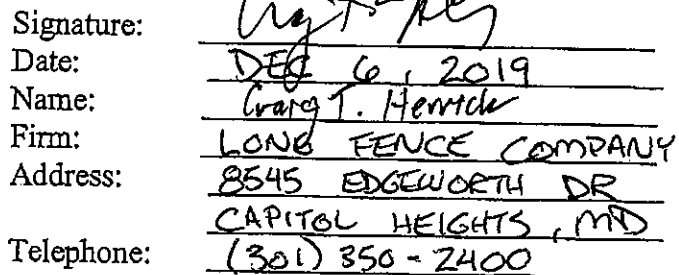 Signature:
Date: DEC 6, 2019
Name: Craig T. Herrick
Firm: LONG FENCE COMPANY
Address: 8545 EDGEWORTH DR
CAPITOL HEIGHTS, MD
Telephone: (301) 350-2400